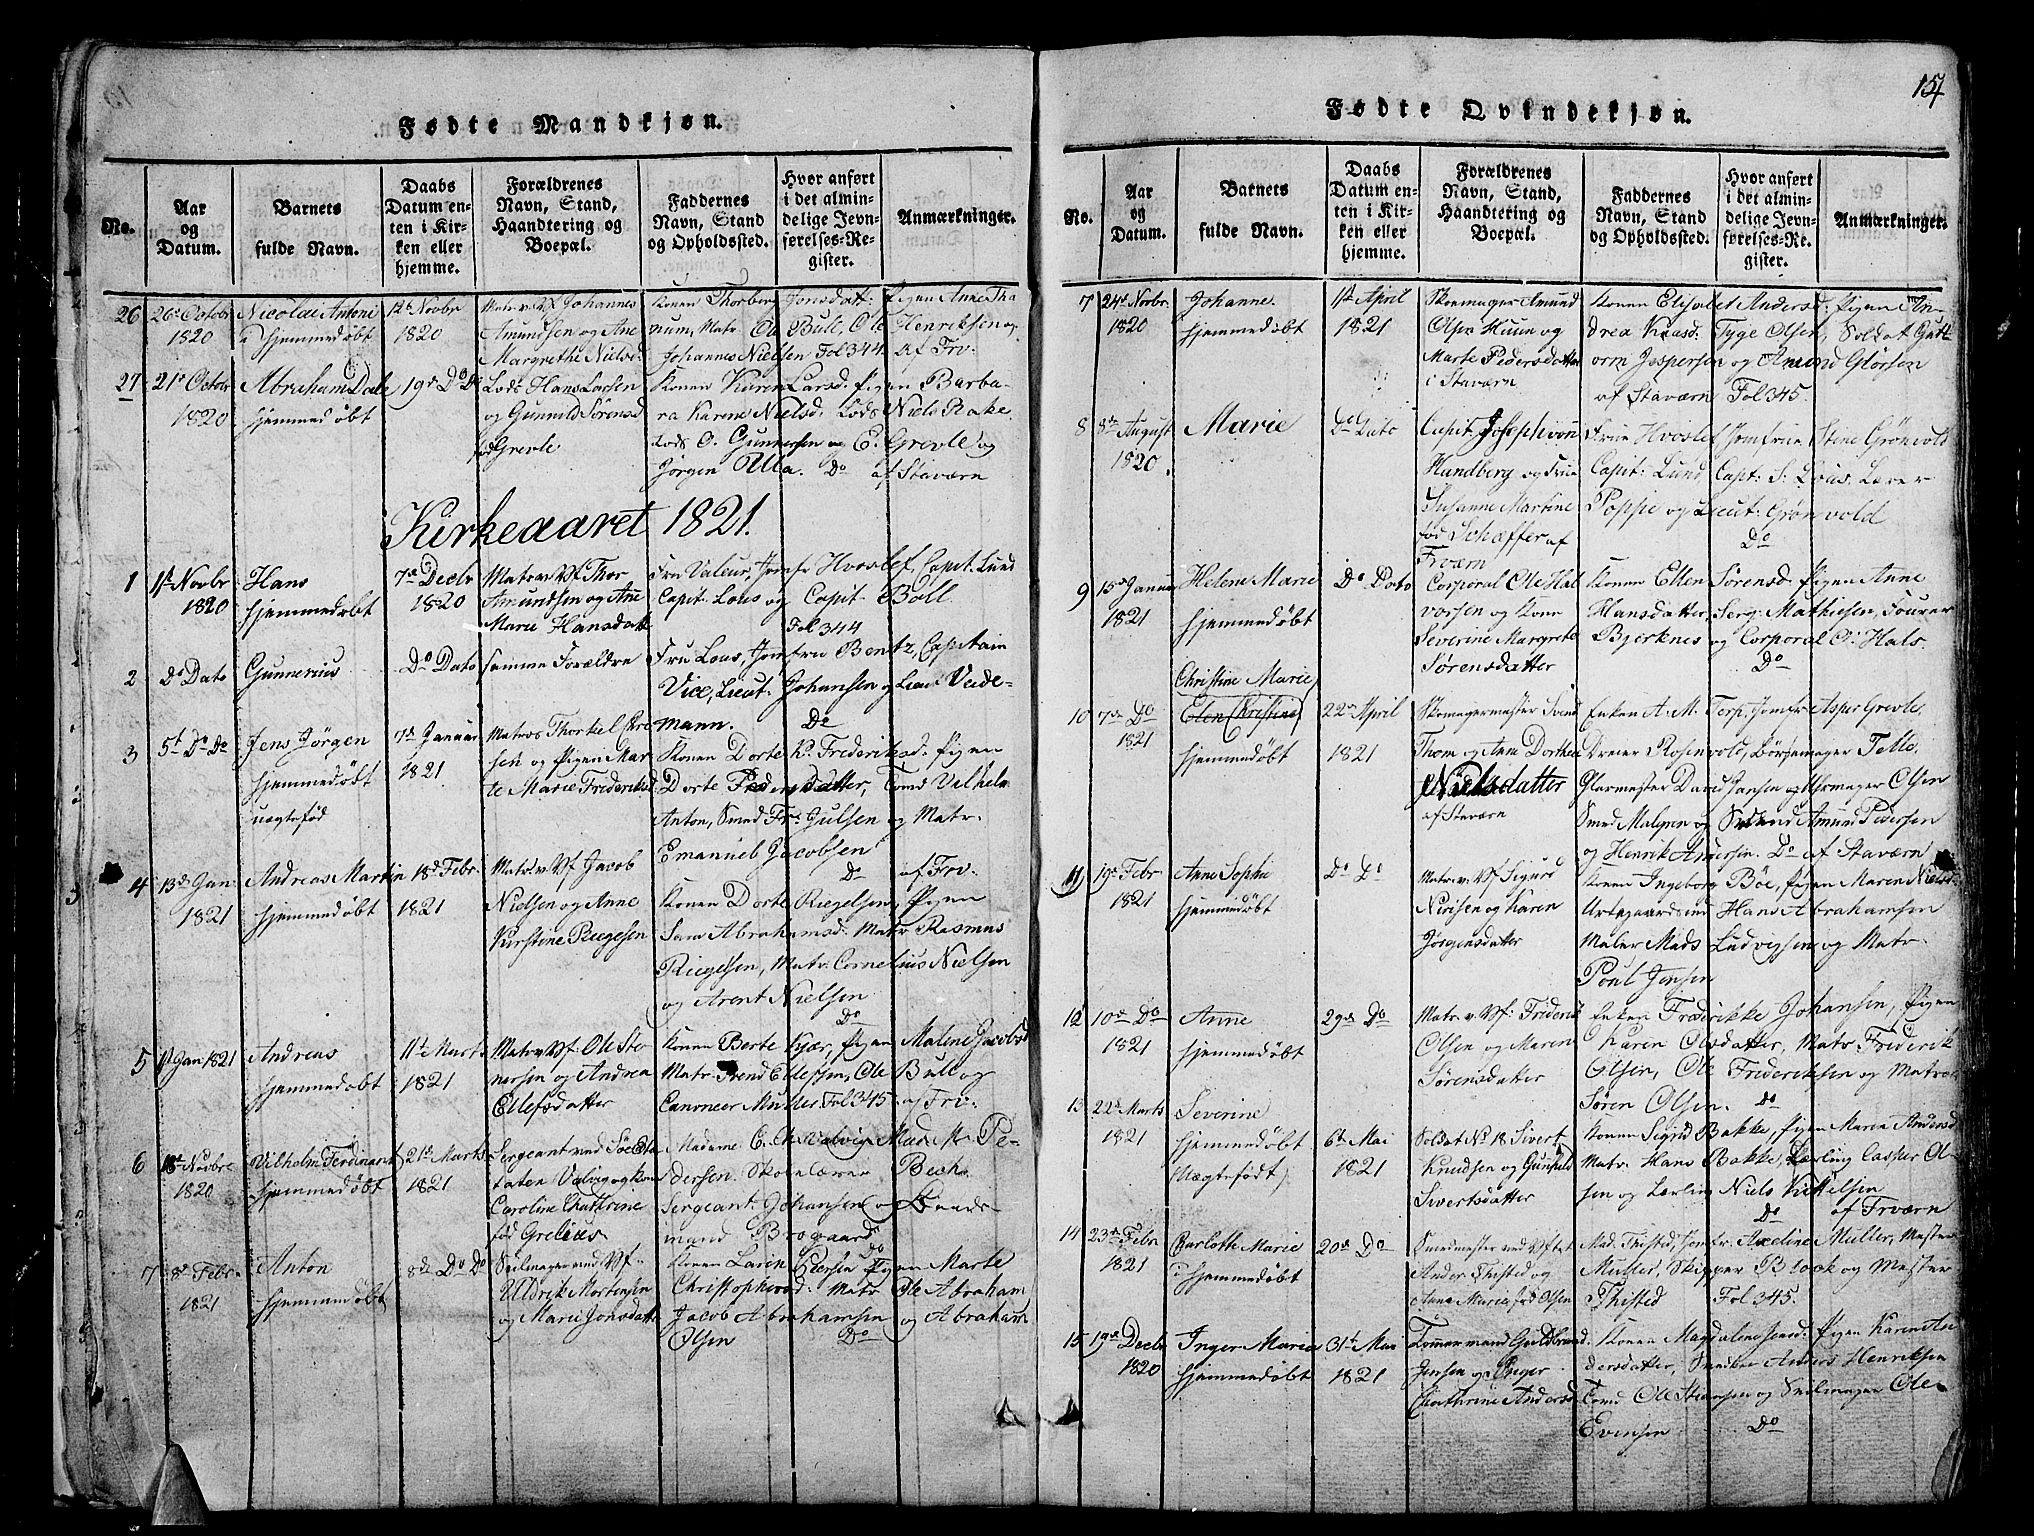 Fødte Mandkjøn.
No.
Aar
og
Datum.
Barnets
fulde Navn.
Daabs
Datum en-
ten i Kir-
ken eller
hjemme.
Forældrenes
Navn, Stand,
Haandtering og
Boepæl.
Faddernes
Navn, Stand
og Opholdssted.
Hvor anført
i det almin-
delige Jevn-
førelses-Re-
gister.
Anmærkninger.
26
26de Octobr
1820
Nicolai Antoni
hjemmedøbt
12te Novbr
1820
Matr. v. Vf Johannes
Amundsen og Ane
Margrethe Nielsd.
Konen Thorberg Jonsdat: Pigen Anne Tha
num, Matr. Ole Bull, Ole Henriksen og
Johannes Nielsen Fol 344. af Frv.
27
21de Octobr
1820
Abraham Dale
hjemmedøbt
19de Do Do
Lods Hans Larsen
og Gunnild Sørensd
fød Grevle
Konen Karen Larsd. Pigen Barba-
ra Karene Nielsd. Lods Niels Rake
Lods O. Gunnersen og E. Grevle og
Jørgen Ulla. Do af Staværn
Kirkeaaret 1821.
1
1ste Novbr
1820
Hans
hjemmedøbt
7de Decbr
1820
Matr. v. Vf. Thor
Amundsen og Ane
Marie Hansdatt
Fru Valeur, Jomfr Hvoslef, Capit. Lund
Capit. Lous og Capit Boll
Fol 344
2
Do Dato
Gunnerius
Do Dato
samme Forældre
Fru Lous, Jomfru Bentz, Capitain
Vice, Lieut. Johansen og Lieut Veide-
mann. Do
3
5te Do Do
Jens Jørgen
hjemmedøbt
uægtefød
7de Januar
1821
Matros Thorkel
sen og Pigen Mar
te Marie Frideriksd
Konen Dorte Frederiksd. Pigen
Dorte Fredriksdatter, Tomd Vilhelm
Anton, Smed Fr. Julsen og Matr.
Emanuel Jacobsen
Do af Frv.
4
13de Jan
1821
Andreas Martin
hjemmedøbt
18de Febr.
1821
Matr. v. Vf Jacob
Nielsen og Anne
Kirstine Riegelsen
Konen Dorte Riegelsen, Pigen
Sara Abrahamsd. Matr Rasmus
Riegelsen, Matr. Cornelius Nielsen
og Arent Nielsen
Do
5
1ste Jan 1821
Andreas
hjemmedøbt
11te Marts
1821
Matr. v. Vf. Ole Ste
nersen og Andrea
Ellefsdatter
Konen Berte Kjær, Pigen Malene Jacobsd
Matr. Trend Ellefsen, Ole Bull og
Canoneer Muller Fol 345 af Frv.
6
18de Novbr
1820
Vilhelm Ferdinant
hjemmedøbt
21de Marts
1821
Sergeant ved Søe Eta
taten Valvig og kon
Caroline Chathrine
fød Grelius
Madame C. Ch. Valvig Mad. M. Pe-
dersen. Skolelærer Bech
Sergeant Johansen
mand Brogaard
Do
7
8de Febr.
1821
Anton
hjemmedøbt
8de Do Do
Seilmager ved Vf.
Uldrik Mortensen
og Marie Jonsdatt
Konen Laren Pigen Marte
Christophersd. Matr Ole Abraham
Jacob Abrahamsen og Abraham
Olsen Do
Fødte Qvindekjøn.
No.
Aar
og
Datum.
Barnets
fulde Navn.
Daabs
Datum en-
ten i Kir-
ken eller
hjemme.
Forældrenes
Navn, Stand,
Haandtering og
Boepæl.
Faddernes
Navn, Stand
og Opholdssted.
Hvor anført
i det almin-
delige Jevn-
førelses-Re-
gister.
Anmærkninger.
7
24de Novbr.
1820
Johanne
hjemmedøbt
1ste April
1821
Skomager Amund
Olsen Huun og
Marte Pedersdatter
i Staværn
Konen Elisabet Andersd. Pigen An-
drea Knusd. Tyge Olsen, Soldat Gutt
orm Jespersen og Amond
af Staværn Fol 345.
8
8de August
1820.
Marie
Do Dato
Capit. Joseph von
Hundberg og Frue
Susanne Martine
fød Schæffer af
Frværn
Frue Hvoslef, Jomfrue Stine Grønvold
Capit: Lund, Capt: S. Lous, Lærer
Poppe og Lieut: Grønvold
Do
9
15de Januar
1821
Helene Marie
hjemmedøbt
Do Dato
Corporal Ole Hal
vorsen og Kone
Severine Margrete
Sørensdatter
Konen Ellen Sørensd. Pigen Anne
Hansdatter, Serg: Mathiesen, Fourer
Bjerknes og Corporal O. Hals.
Do
10
7de Do
1821
Christine Marie
Elen Christine
hjemmedøbt
22de April
1821
Skomagermester Svend
Thom og Anne Dorthea
Nielsdatter
af Staværn
Enken A. M. Terp, Jomfr Aspur Grevle
Dreier Rosenvold, Børsemager Telle,
Glarmester David Jansen og Uhrmager Olsen
Smed Malgen og Svend Amund Pedersen
og Henrik Andersen. Do af Staværn
11
19de Febr
1821
Anne Sophie
hjemmedøbt
Do Do
Matr. v. Vf Sigurd
Nerisen og Karen
Jørgensdatter
Konen Ingeborg Bøe, Pigen Maren Nielsd.
Hans Abrahamsen
Maler Mads Ludvigsen og Matr.
Poul Jensen
12
10de Do
1821
Anne
hjemmedøbt
29de Do
Matr. v. Vf. Friderik
Olsen og Maren
Sørensdatter
Enken Frederikke Johansen, Pigen
Karen Olsdatter, Matr Friderik
Olsen, Ole Frideriksen og Matros
Søren Olsen. Do
13
22de Marts
1821
Severine
hjemmedøbt
(Uægtefødt)
6te Mai
1821
Soldat No 18 Sivert
Knudsen og Gunhild
Sivertsdatter
Konen Sigrid Bakke, Pigen Maria Andersd
Matr. Hans Bakke, Lærling Casper Ol-
sen og Lærling Niels Kittelsen
Do af Frværn
14
23de Febr
1821
Carlotte Marie
hjemmedøbt
20de Do
Smedmester ved Vftet
Ander Thisted og
Anna Marie fød Olsen
Mad. Thisted, Jomfr. Axeline Muller, Mester
Muller, Skipper Brook og Mester
Thisted Fol 345.
15
19de Decbr
1820
Inger Maria
hjemmedøbt
31te Mai
1821
Tømmermand Guldbrand
Jensen og Inger
Chathrine Andersd
Konen Magdalene Jensd. Pigen Karen An
dersdatter, Snedker Anders Henriksen
Tomd Ole Steensen og Seilmager Ole
Evensen Do